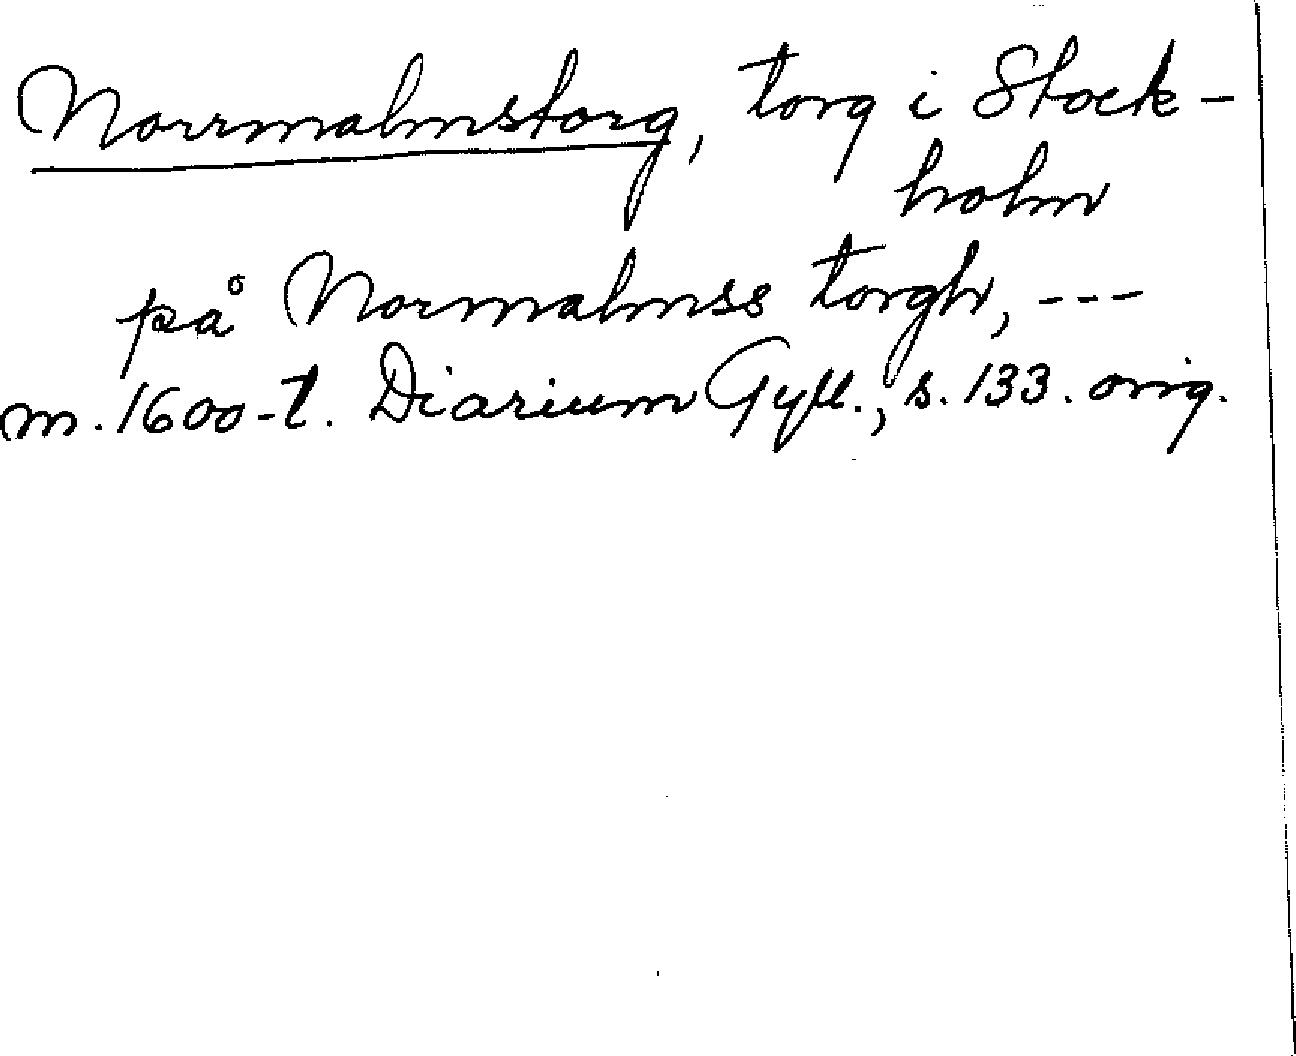 Norrmalmstorg, torg i Stock-
holm
på Normalmss torgh, ---
m. 1600-t. Diarium Gyll., s. 133. orig.